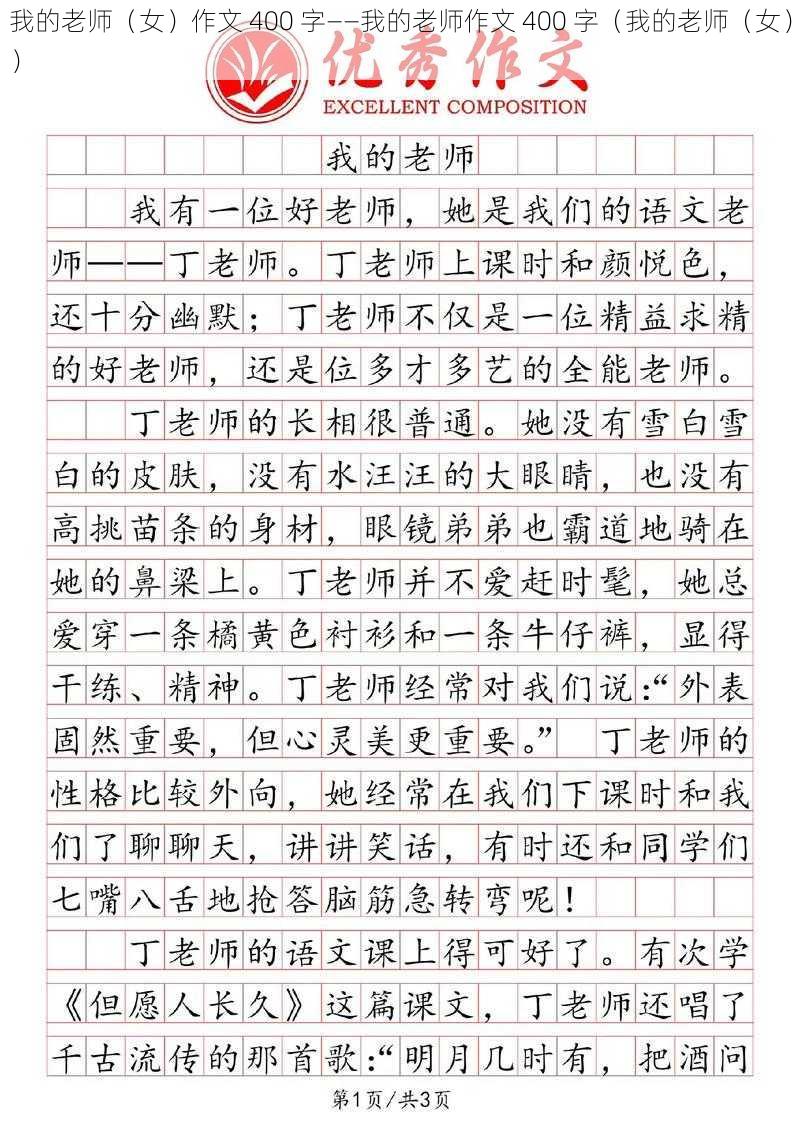 我的老师（女）作文 400 字——我的老师作文 400 字（我的老师（女）
）
优秀作文
EXCELLENT COMPOSITION
我的老师
我有一位好老师，她是我们的语文老
师——丁老师。丁老师上课时和颜悦色，
还十分幽默；丁老师不仅是一位精益求精
的好老师，还是位多才多艺的全能老师。
丁老师的长相很普通。她没有雪白雪
白的皮肤，没有水汪汪的大眼睛，也没有
高挑苗条的身材，眼镜弟弟也霸道地骑在
她的鼻梁上。丁老师并不爱赶时髦，她总
爱穿一条橘黄色衬衫和一条牛仔裤，显得
干练、精神。丁老师经常对我们说：“外表
固然重要，但心灵美更重要。” 丁老师的
性格比较外向，她经常在我们下课时和我
们了聊聊天，讲讲笑话，有时还和同学们
七嘴八舌地抢答脑筋急转弯呢！
丁老师的语文课上得可好了。有次学
《但愿人长久》这篇课文，丁老师还唱了
千古流传的那首歌：“明月几时有，把酒问
第1页/共3页